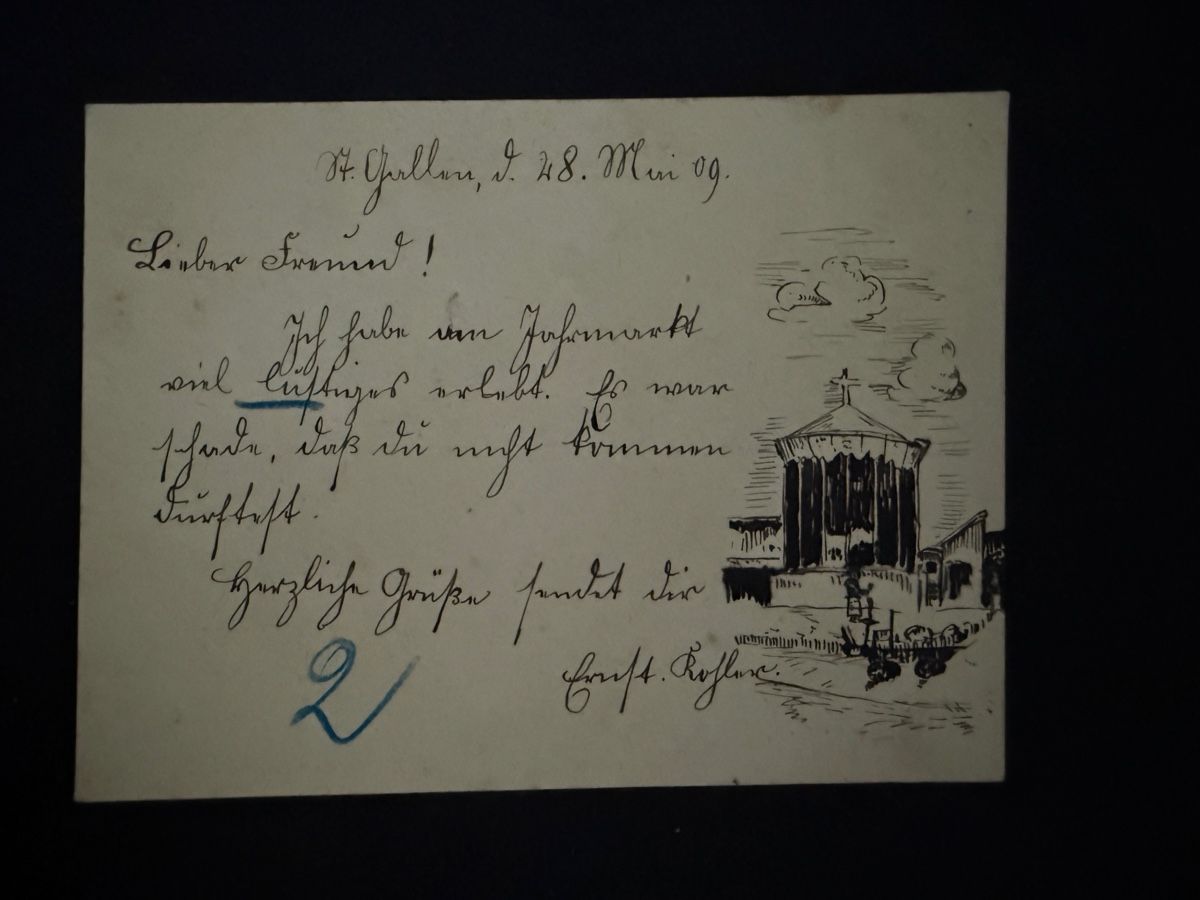 St. Gallen, d. 28. Mai 09.
Lieber Freund!
Ich habe am Jahrmarkt
viel lustiges erlebt. Es war
schade, daß du nicht kommen
durftest.
Herzliche Grüße sendet dir
Ernst. Kohler.
2